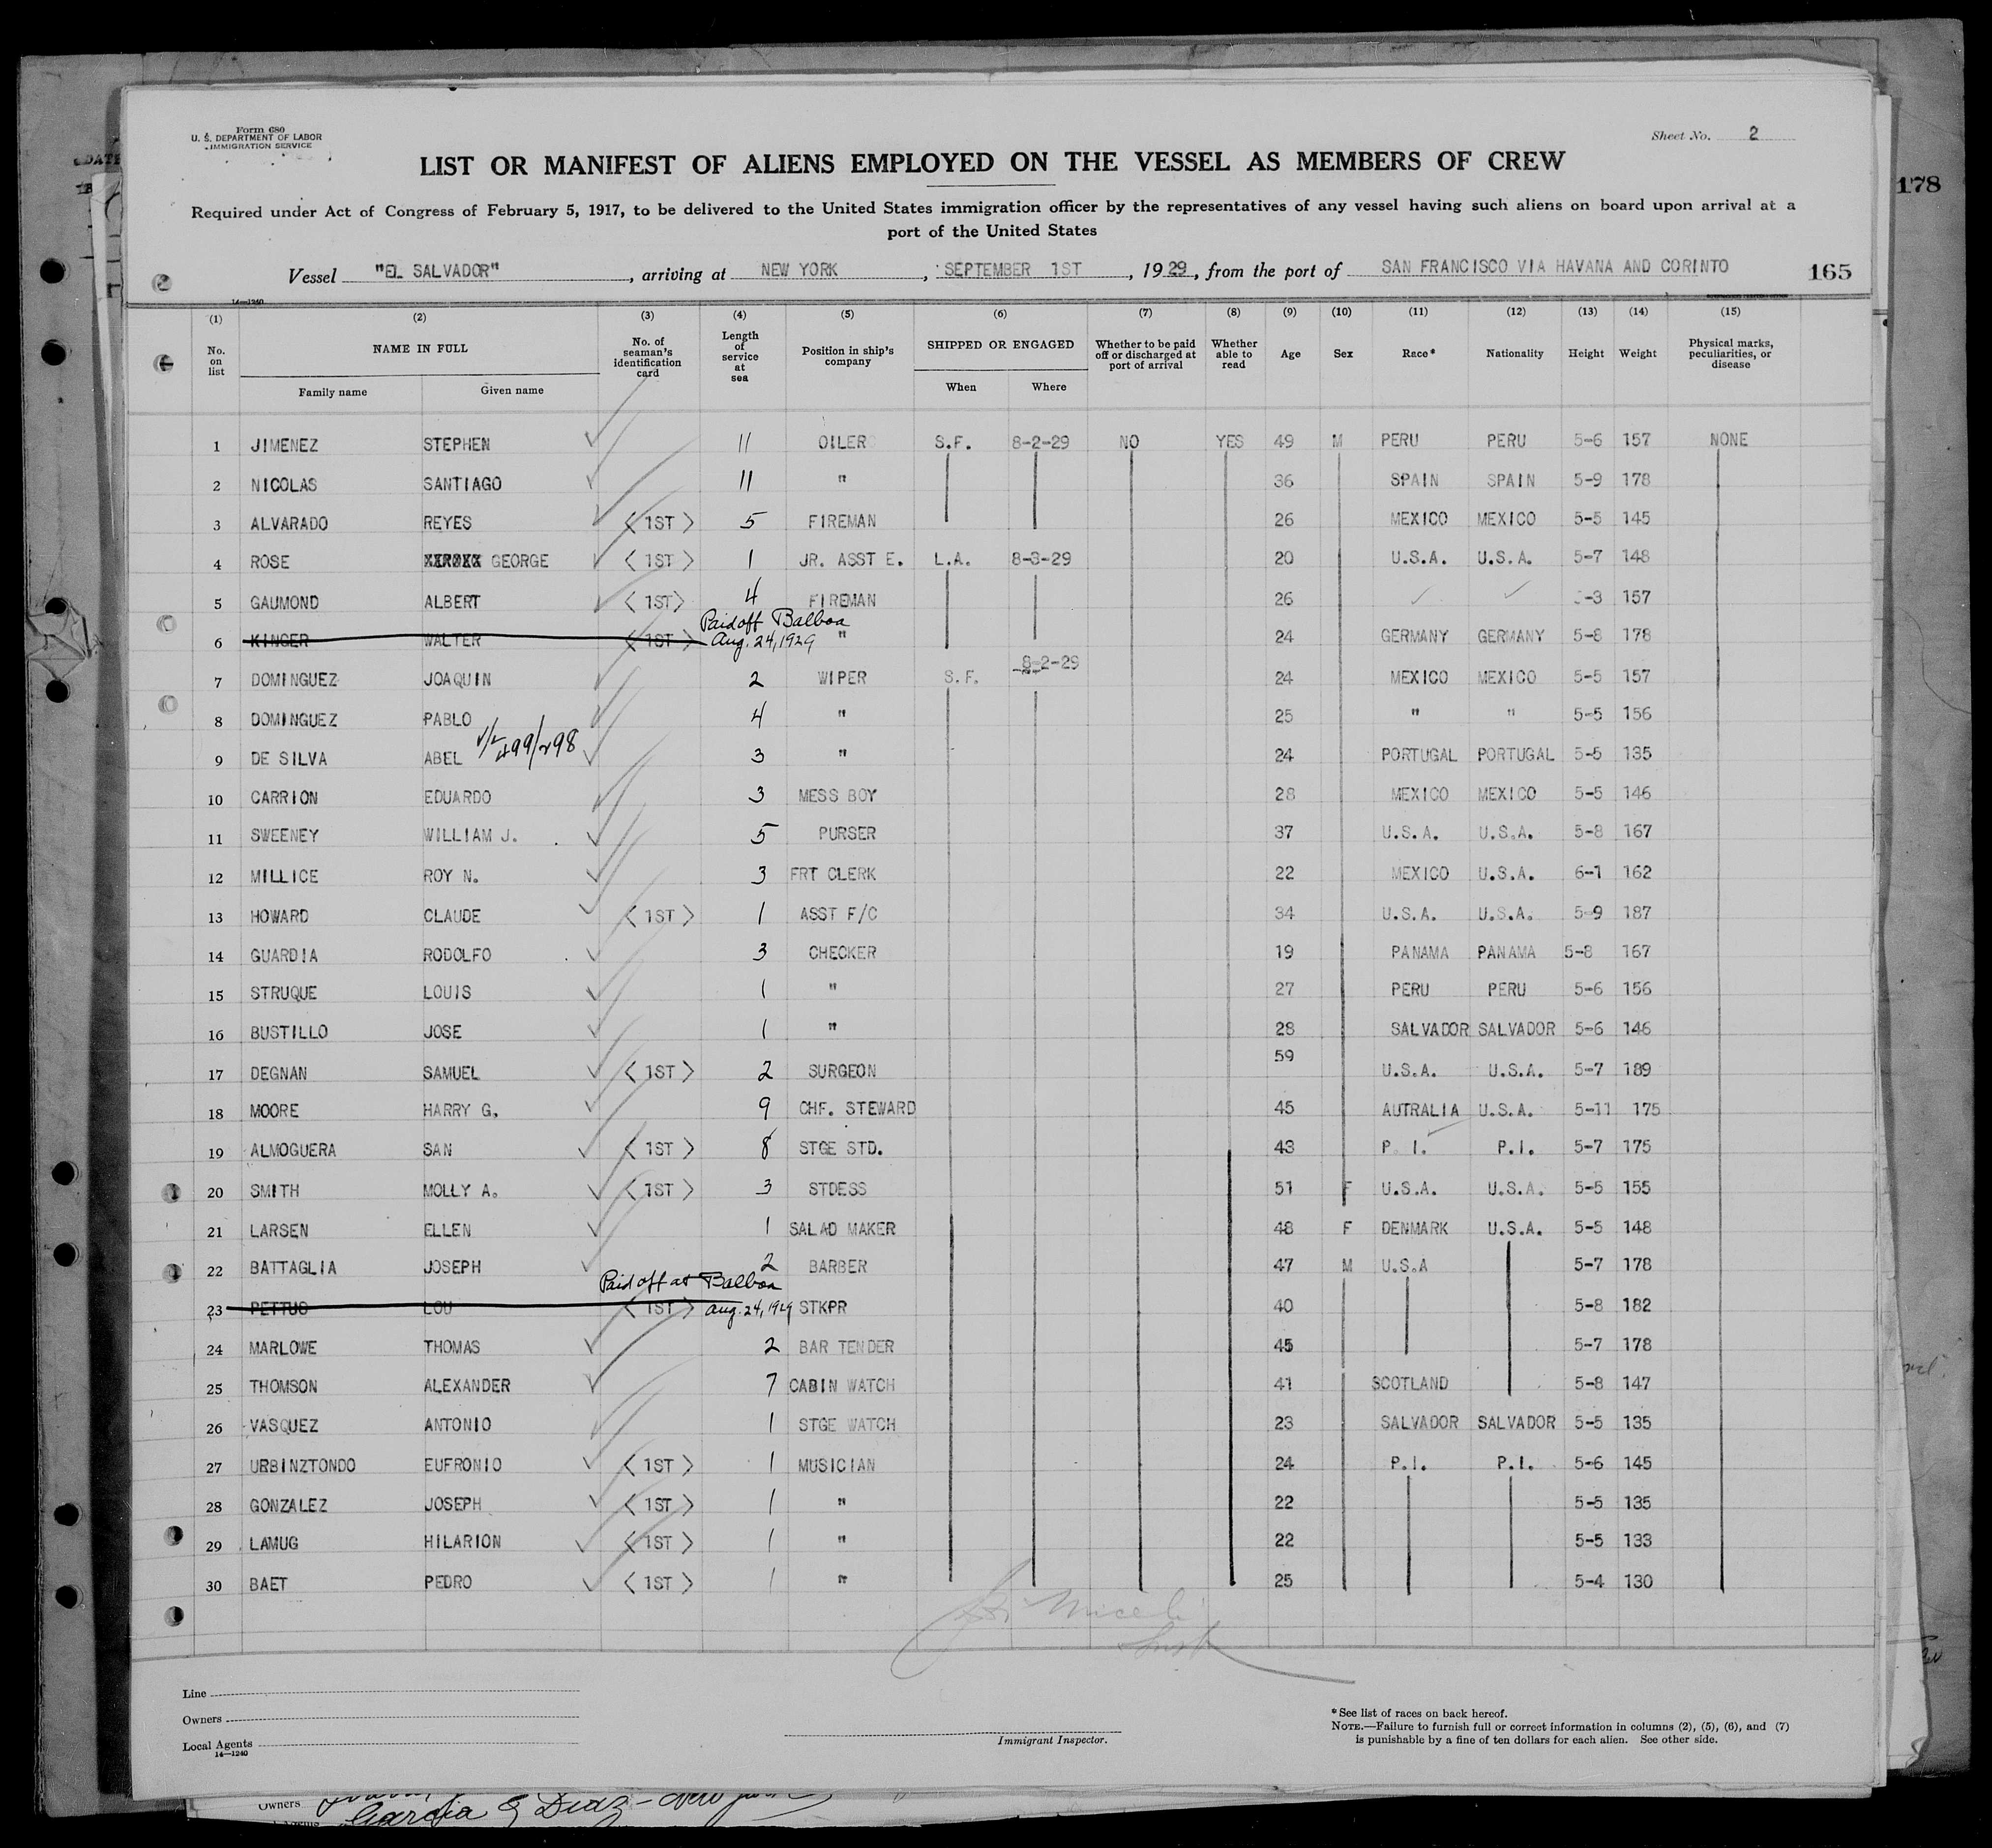 Form 680
U. S. DEPARTMENT OF LABOR
IMMIGRATION SERVICE
Sheet No. 2
LIST OR MANIFEST OF ALIENS EMPLOYED ON THE VESSEL AS MEMBERS OF CREW
178
Required under Act of Congress of February 5, 1917, to be delivered to the United States immigration officer by the representatives of any vessel having such aliens on board upon arrival at a
port of the United States
Vessel "EL SALVADOR", arriving at NEW YORK, SEPTEMBER 1ST, 1929, from the port of SAN FRANCISCO VIA HAVANA AND CORINTO 165
14—1240
(1) (2) (3) (4) (5) (6) (7) (8) (9) (10) (11) (12) (13) (14) (15)
No. on list NAME IN FULL Family name Given name No. of seaman's identification card Length of service at sea Position in ship's company SHIPPED OR ENGAGED When Where Whether to be paid off or discharged at port of arrival Whether able to read Age Sex Race* Nationality Height Weight Physical marks, peculiarities, or disease
1 JIMENEZ STEPHEN 11 OILER S.F. 8-2-29 NO YES 49 M PERU PERU 5-6 157 NONE
2 NICOLAS SANTIAGO 11 " 36 SPAIN SPAIN 5-9 178
3 ALVARADO REYES <1ST> 5 FIREMAN 26 MEXICO MEXICO 5-5 145
4 ROSE GEORGE <1ST> 1 JR. ASST E. L.A. 8-3-29 20 U.S.A. U.S.A. 5-7 148
5 GAUMOND ALBERT <1ST> 4 FIREMAN 26 ✓ ✓ -3 157
Paid off Balboa
6 KINGER WALTER <1ST> Aug. 24, 1929 " 24 GERMANY GERMANY 5-8 178
7 DOMINGUEZ JOAQUIN 2 WIPER S.F. 8-2-29 24 MEXICO MEXICO 5-5 157
8 DOMINGUEZ PABLO 4 " 25 " " 5-5 156
9 DE SILVA ABEL 499/298 3 " 24 PORTUGAL PORTUGAL 5-5 135
10 CARRION EDUARDO 3 MESS BOY 28 MEXICO MEXICO 5-5 146
11 SWEENEY WILLIAM J. 5 PURSER 37 U.S.A. U.S.A. 5-8 167
12 MILLICE ROY N. 3 FRT CLERK 22 MEXICO U.S.A. 6-1 162
13 HOWARD CLAUDE <1ST> 1 ASST F/C 34 U.S.A. U.S.A. 5-9 187
14 GUARDIA RODOLFO 3 CHECKER 19 PANAMA PANAMA 5-8 167
15 STRUQUE LOUIS 1 " 27 PERU PERU 5-6 156
16 BUSTILLO JOSE 1 " 28 SALVADOR SALVADOR 5-6 146
17 DEGNAN SAMUEL <1ST> 2 SURGEON 59 U.S.A. U.S.A. 5-7 189
18 MOORE HARRY G, 9 CHF. STEWARD 45 AUTRALIA U.S.A. 5-11 175
19 ALMOGUERA SAN <1ST> 8 STGE STD. 43 P. I. P.I. 5-7 175
20 SMITH MOLLY A. <1ST> 3 STDESS 51 F U.S.A. U.S.A. 5-5 155
21 LARSEN ELLEN 1 SALAD MAKER 48 F DENMARK U.S.A. 5-5 148
22 BATTAGLIA JOSEPH 2 BARBER 47 M U.S.A 5-7 178
Paid off at Balboa
23 PETTUS LOU <1ST> Aug. 24, 1929 STKPR 40 5-8 182
24 MARLOWE THOMAS 2 BAR TENDER 45 5-7 178
25 THOMSON ALEXANDER 7 CABIN WATCH 41 SCOTLAND 5-8 147
26 VASQUEZ ANTONIO 1 STGE WATCH 23 SALVADOR SALVADOR 5-5 135
27 URBINZTONDO EUFRONIO <1ST> 1 MUSICIAN 24 P.I. P.I. 5-6 145
28 GONZALEZ JOSEPH <1ST> 1 " 22 5-5 135
29 LAMUG HILARION <1ST> 1 " 22 5-5 133
30 BAET PEDRO <1ST> 1 " 25 5-4 130
Line
Owners
Local Agents
14—1240
Immigrant Inspector.
*See list of races on back hereof.
NOTE.—Failure to furnish full or correct information in columns (2), (5), (6), and (7)
is punishable by a fine of ten dollars for each alien. See other side.
Owners
Garcia & Diaz - New York